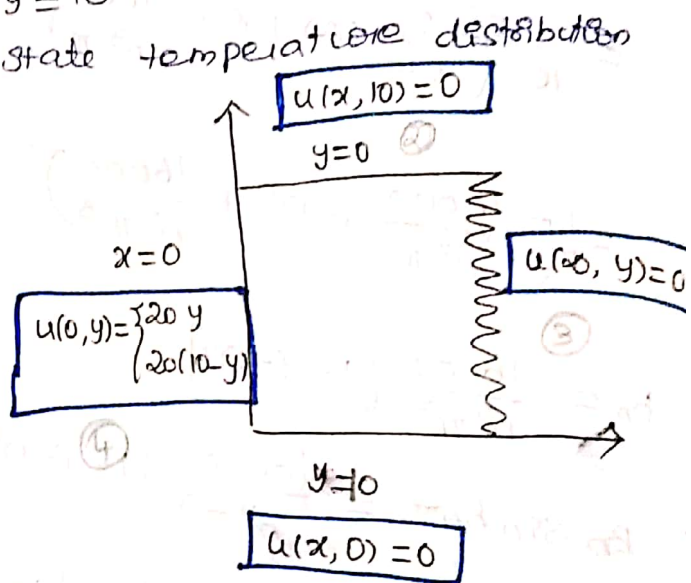 y = 10
state temperature distribution
u(x, 10) = 0
②
y=0
x=0
u(∞, y)=0
③
u(0,y)={20 y
{20(10-y)
④
y=10
u(x, 0) = 0